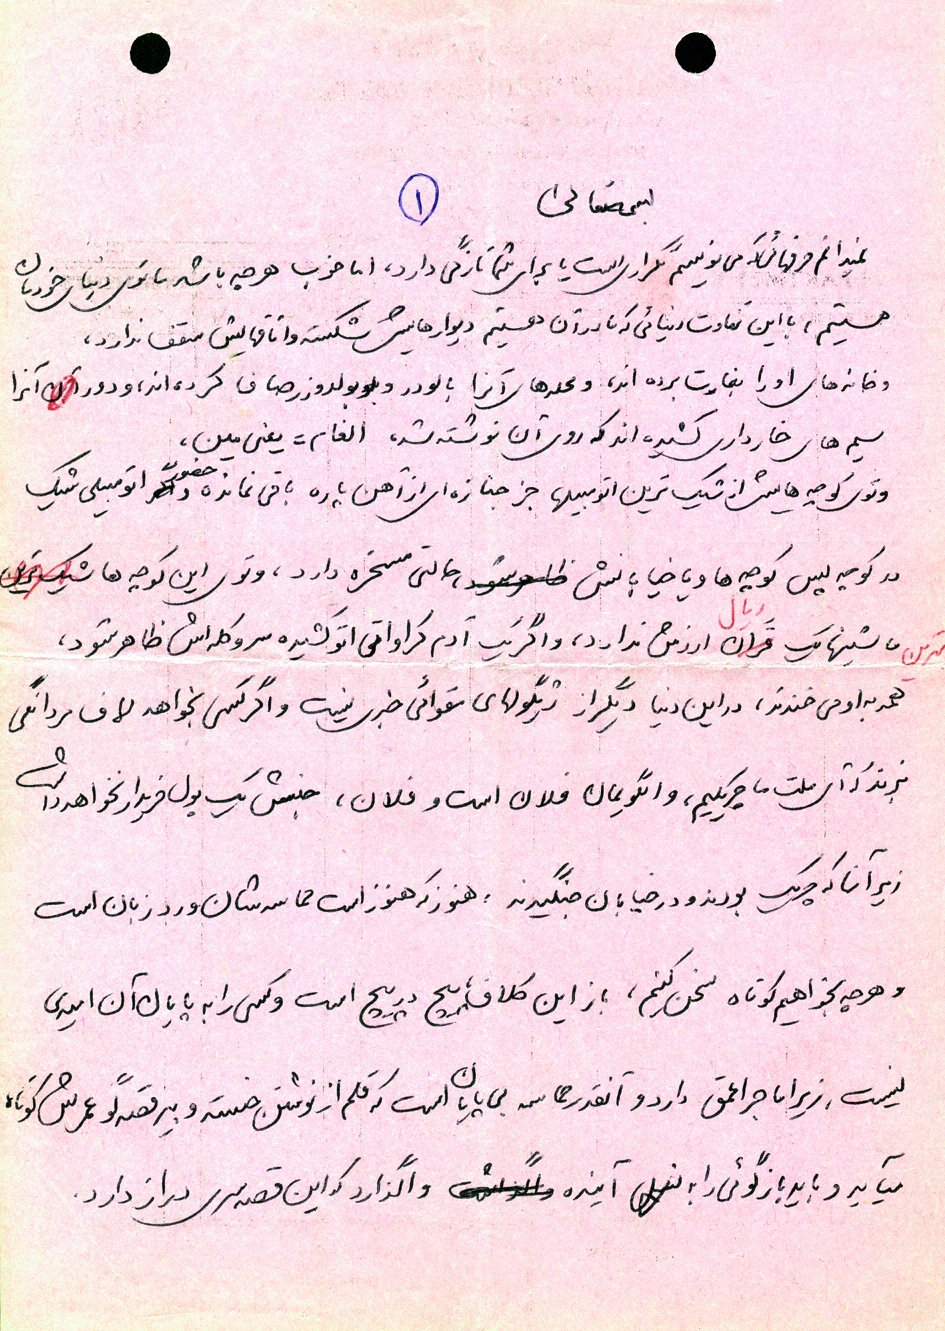 بسمه تعالی
۱
نمیدانم حرفهائی که می نویسم تکراری است یا برای شما تازگی دارد، اما خوب هرچه باشد ما توی دنیای خودمان
هستیم، با این تفاوت دنیائی که ما در آن هستیم دیوارهایش شکسته و اتاقهایش سقف ندارد،
و خانه های او را بغارت برده اند، و محله های آنرا با لودر و بلدوزر صاف کرده اند، و دور آنرا
سیم های خارداری کشیده اند که روی آن نوشته شده، الغام = یعنی مین،
و توی کوچه هایش از شیک ترین اتومبیلها جز جنازه ای از آهن پاره باقی نمانده و حضور اتومبیلی شیک
در کوچه پس کوچه ها و یا خیابانش ظاهر شود، حالتی مسخره دارد، و توی این کوچه ها شیک ترین
ماشینها یک قران ریال ارزش ندارد، و اگر یک آدم کراواتی اتو کشیده سر و کله اش ظاهر شود،
همه به او می خندند، در این دنیا دیگر از ژیگولهای مقوائی خبری نیست و اگر کسی بخواهد لاف مردانگی
بزند که آی ملت ما چریکیم، و الگویمان فلان است و فلان، جنسش یک پول خریدار نخواهد داشت
زیرا آنها که چریک بودند و در خیابان جنگیدند، هنوز که هنوز است حماسه شان ورد زبان است
و هرچه بخواهیم کوتاه سخن کنیم، باز این کلاف پیچ در پیچ است و کسی را به پایان آن امیدی
نیست، زیرا ماجرا عمق دارد و آنقدر حماسه بی پایان است که قلم از نوشتن خسته و پیر قصه گو عمرش کوتاه
میآید و باید بازگوئی را به نسل آینده واگذارد که این قصه سری دراز دارد.